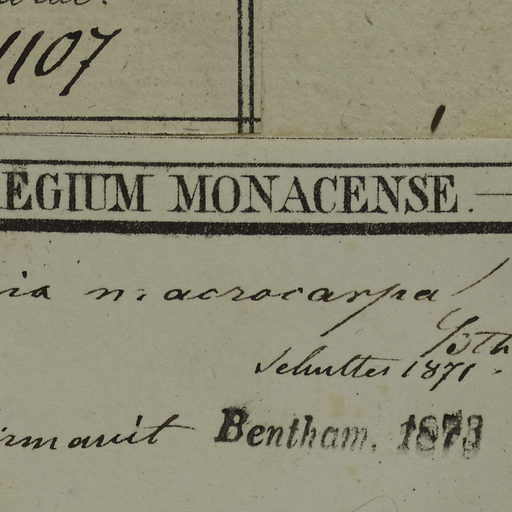 1107
EGIUM MONACENSE.
ia macrocarpa
Schultes 1871.
irmavit Bentham, 1873